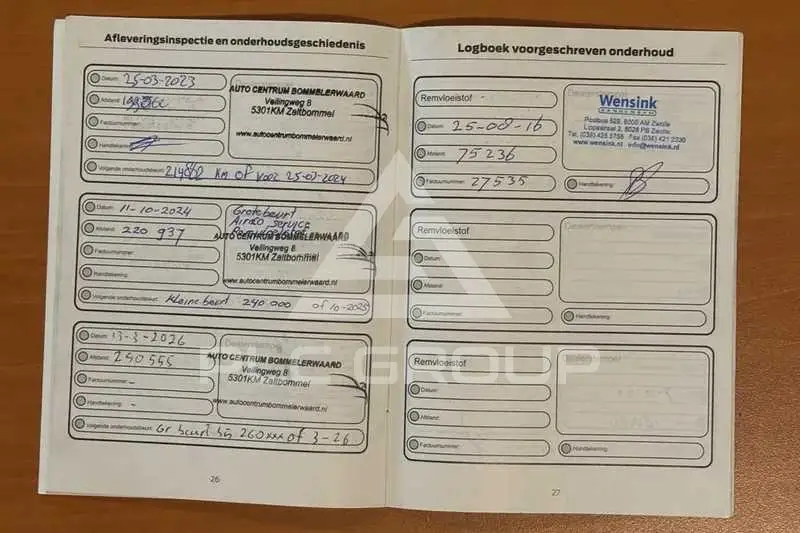 Afleveringsinspectie en onderhoudsgeschiedenis
Datum: 25-03-2023
Afstand:
Factuurnummer:
Handtekening:
Volgende onderhoudsbeurt: 214862 km of voor 25-03-2024
AUTO CENTRUM BOMMELERWAARD
Veilingweg 8
5301KM Zaltbommel
www.autocentrumbommelerwaard.nl
Datum: 11-10-2024
Afstand: 220 937
Factuurnummer:
Handtekening:
Volgende onderhoudsbeurt: kleine beurt 240.000 of 10-2025
Grote beurt
Airco service
AUTO CENTRUM BOMMELERWAARD
Veilingweg 8
5301KM Zaltbommel
www.autocentrumbommelerwaard.nl
Datum: 13-3-2026
Afstand: 250 555
Factuurnummer: -
Handtekening: -
Volgende onderhoudsbeurt: Gr beurt bij 260xxx of 3-26
Dealerstempel
AUTO CENTRUM BOMMELERWAARD
Veilingweg 8
5301KM Zaltbommel
www.autocentrumbommelerwaard.nl
26
Logboek voorgeschreven onderhoud
Remvloeistof
Datum: 25-08-16
Afstand: 75236
Factuurnummer: 27535
Wensink
Postbus 529, 8000 AM Zwolle
www.wensink.nl info@wensink.nl
Handtekening:
Remvloeistof
Datum:
Afstand:
Factuurnummer:
Dealerstempel
Handtekening:
Remvloeistof
Datum:
Afstand:
Factuurnummer:
Handtekening:
27
GROUP